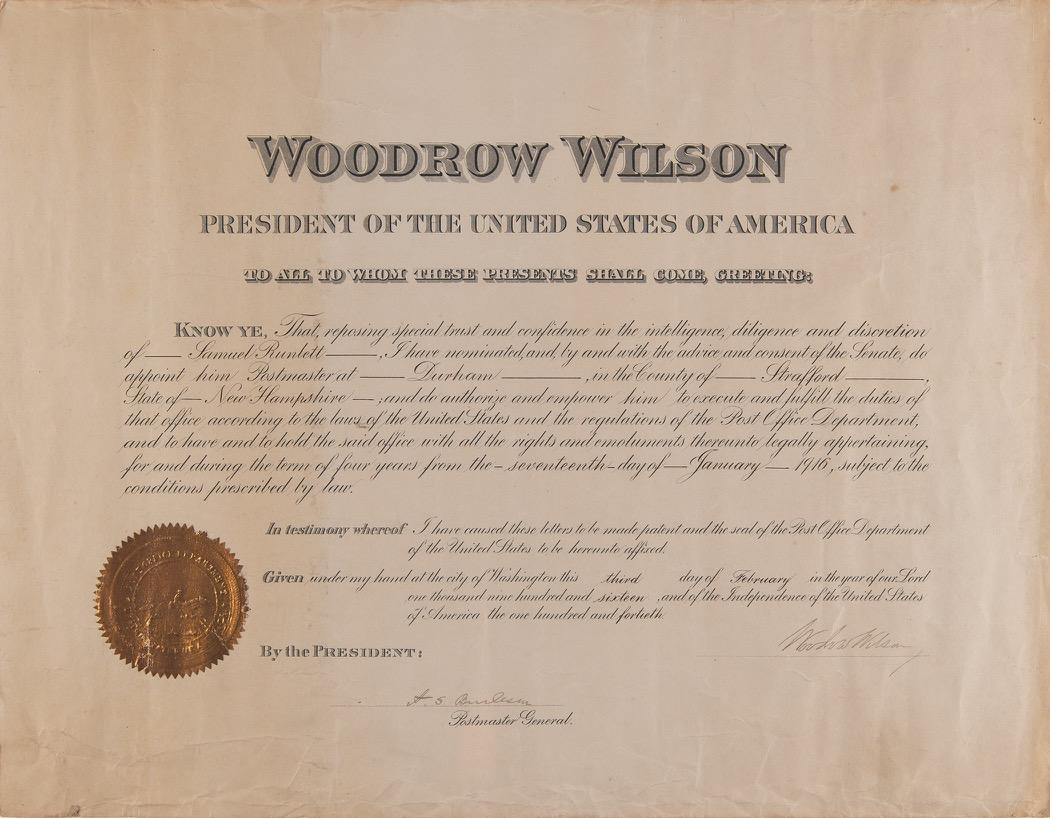 WOODROW WILSON
PRESIDENT OF THE UNITED STATES OF AMERICA
TO ALL TO WHOM THESE PRESENTS SHALL COME, GREETING:
KNOW YE, That, reposing special trust and confidence in the intelligence, diligence and discretion
of — Samuel Runlett —, I have nominated, and, by and with the advice and consent of the Senate, do
appoint him Postmaster at — Durham —, in the County of — Strafford —,
State of — New Hampshire —; and do authorize and empower him to execute and fulfill the duties of
that office according to the laws of the United States and the regulations of the Post Office Department,
and to have and to hold the said office with all the rights and emoluments thereunto legally appertaining,
for and during the term of four years from the – seventeenth – day of — January — 1916, subject to the
conditions prescribed by law.
In testimony whereof I have caused these letters to be made patent and the seal of the Post Office Department
of the United States to be hereunto affixed.
Given under my hand at the city of Washington this third day of February in the year of our Lord
one thousand nine hundred and sixteen, and of the Independence of the United States
of America the one hundred and fortieth.
Woodrow Wilson
By the PRESIDENT:
A. S. Burleson
Postmaster General.